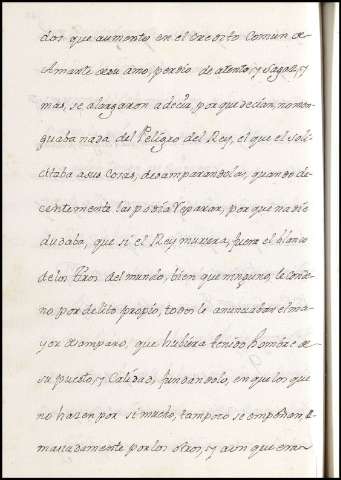 dor que aumento en el credito Comun de
Amante de su amo, perdio de atento, y Sagaz, y
mas, se alargaron a decir, porque decian, no men
guaba nada del Peligro del Rey, el que el Soli
citaba a sus Cosas, desamparandolas, quando de
centemente las podia reparar, porque nadie
dudaba, que si el Rey muriera, fuera el blanco
de los tiros del mundo, bien que ninguno, le conde
no por delito propio, todos le anunciaban el ma
yor desamparo, que hubiera tenido hombre de
su puesto, y Calidad, fundandolo, en que los que
no hazen por si mucho, tampoco se empeñan,
madamente por los otros, y aun que era